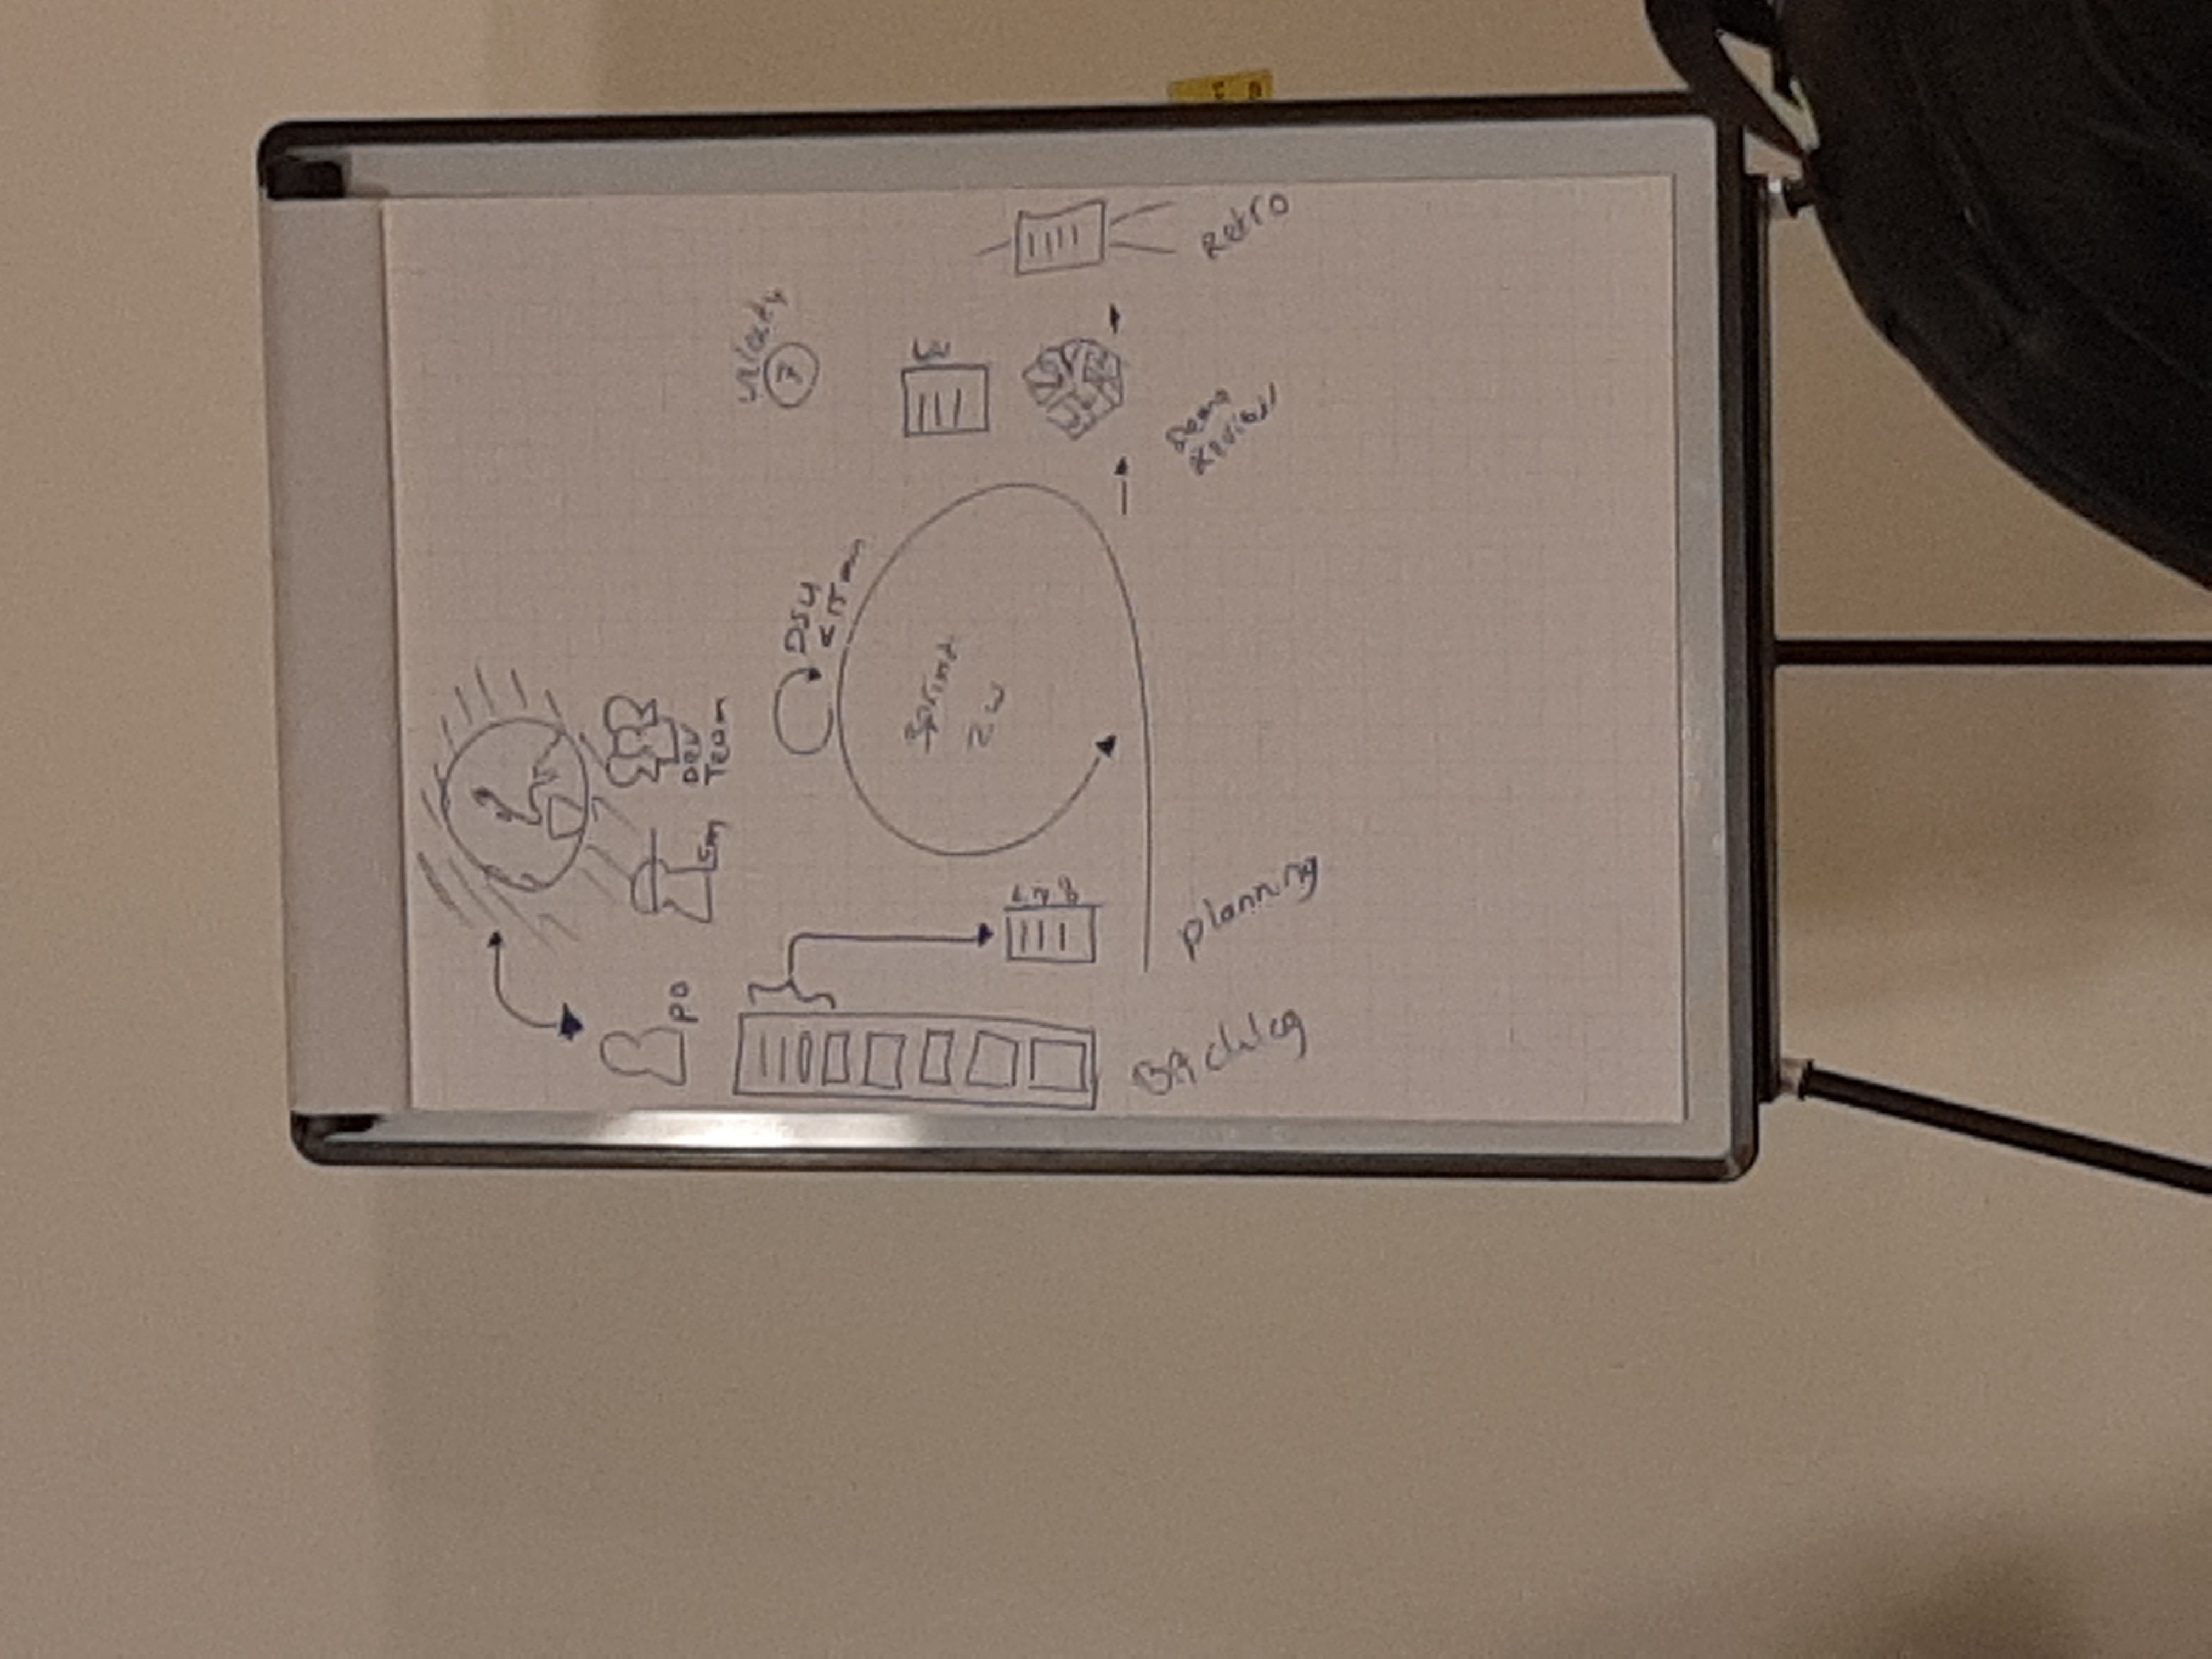 PO
SM
Dev
Team
velocity
7
DSU
< 15 min
Sprint
2 w
Backlog
planning
Demo
Review
Retro